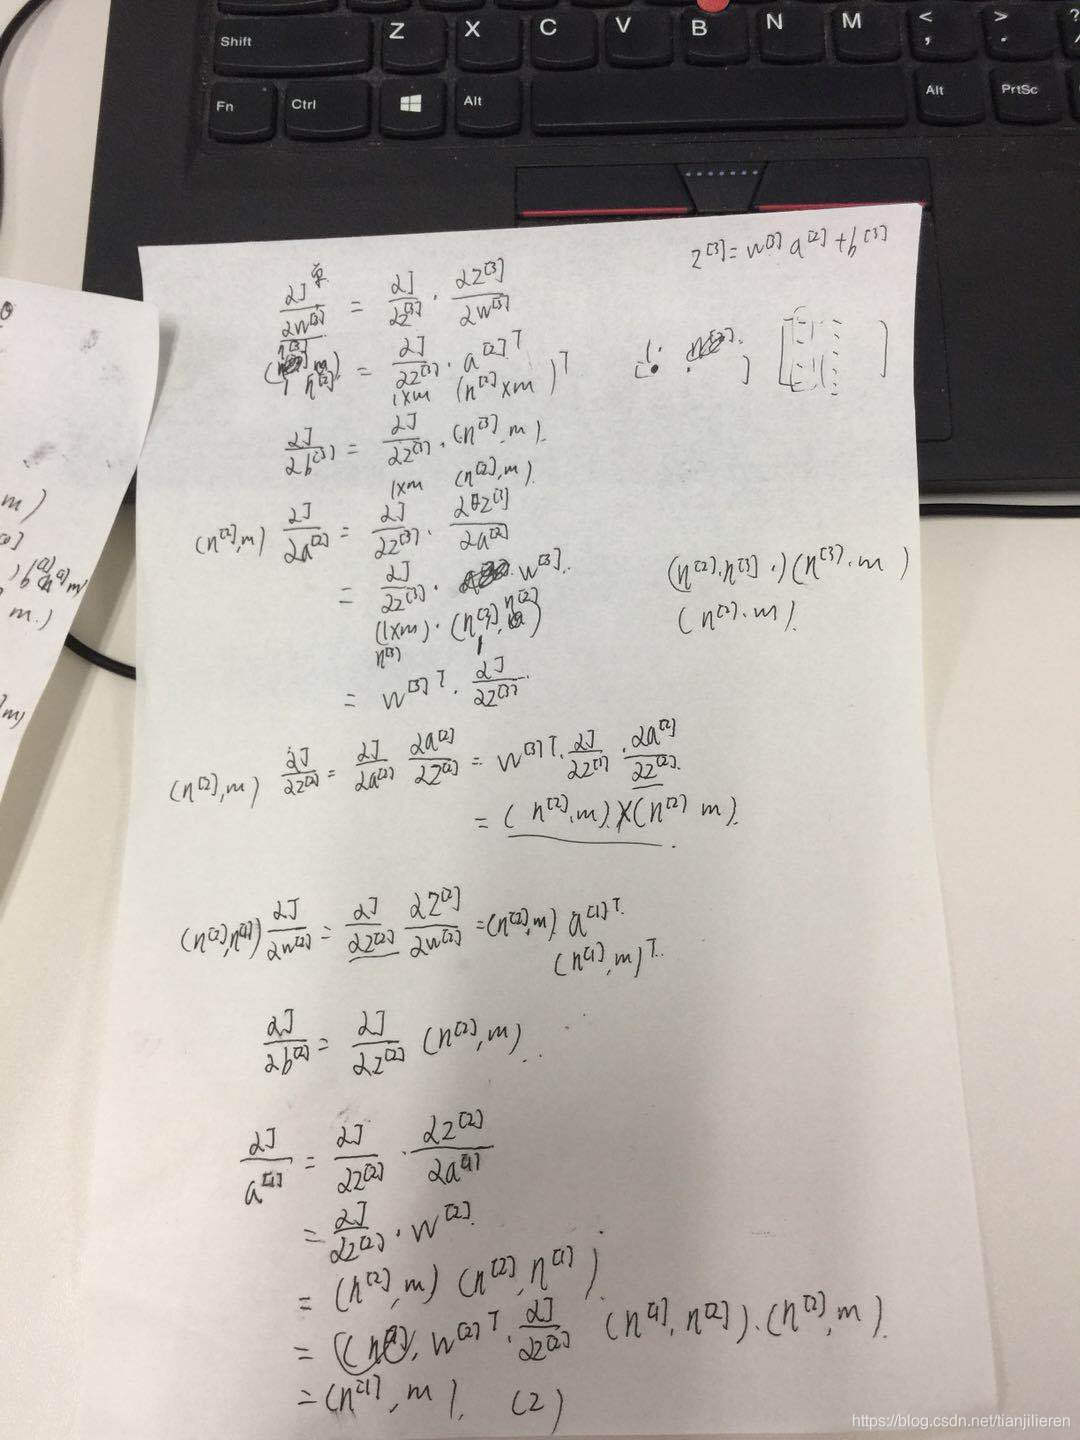 Shift Z X C V B N M < , > . ?
Fn Ctrl Alt Alt PrtSc
z^[3] = w^[3] a^[2] + b^[3]
∂J/∂w^[3] = ∂J/∂z^[3] · ∂z^[3]/∂w^[3]
= ∂J/∂z^[3] · a^[2]T
1×m (n^[2]×m)^T
∂J/∂b^[3] = ∂J/∂z^[3] · (n^[3], m).
1×m (n^[2], m).
(n^[2], m) ∂J/∂a^[2] = ∂J/∂z^[3] · ∂z^[3]/∂a^[2]
= ∂J/∂z^[3] · w^[3].
(n^[2]·n^[3]·)(n^[3]·m)
(1×m) · (n^[3], n^[2])
n^[3] 1
(n^[2]·m).
= w^[3]T · ∂J/∂z^[3].
(n^[2], m) ∂J/∂z^[2] = ∂J/∂a^[2] ∂a^[2]/∂z^[2] = w^[3]T · ∂J/∂z^[3] · ∂a^[2]/∂z^[2].
= (n^[2], m) × (n^[2] m).
(n^[2], n^[1]) ∂J/∂w^[2] = ∂J/∂z^[2] ∂z^[2]/∂w^[2] = (n^[2], m) a^[1]T.
(n^[1], m)^T.
∂J/∂b^[2] = ∂J/∂z^[2] (n^[2], m)
∂J/a^[1] = ∂J/∂z^[2] · ∂z^[2]/∂a^[1]
= ∂J/∂z^[2] · w^[2].
= (n^[2], m) (n^[2], n^[1])
= w^[2]T · ∂J/∂z^[2] (n^[1], n^[2]) · (n^[2], m).
= (n^[1], m). (2)
m)
m.)
m)
https://blog.csdn.net/tianjilieren